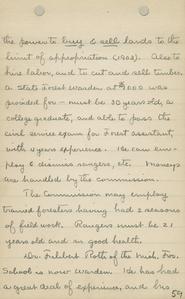 the power to buy & sell lands to the
limit of appropriation (1903). Also to
hire labor, and to cut and sell timber.
A State Forest Warden at $1000 was
provided for – must be 30 years old, a
college graduate, and able to pass the
civil service exam for Forest assistant,
with 4 years experience. He can em-
ploy & dismiss rangers, etc. Moneys
are handled by the commission.
The Commission may employ
trained foresters having had 2 seasons
of field work. Rangers must be 21
years old and in good health.
Dr. Filibert Roth of the Mich. For.
School is now Warden. He has had
a great deal of experience, and his
59